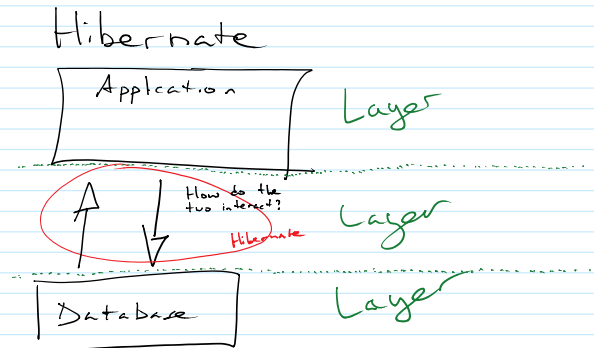 Hibernate
Application
Layer
How do the
two interact?
Layer
Hibernate
Database
Layer